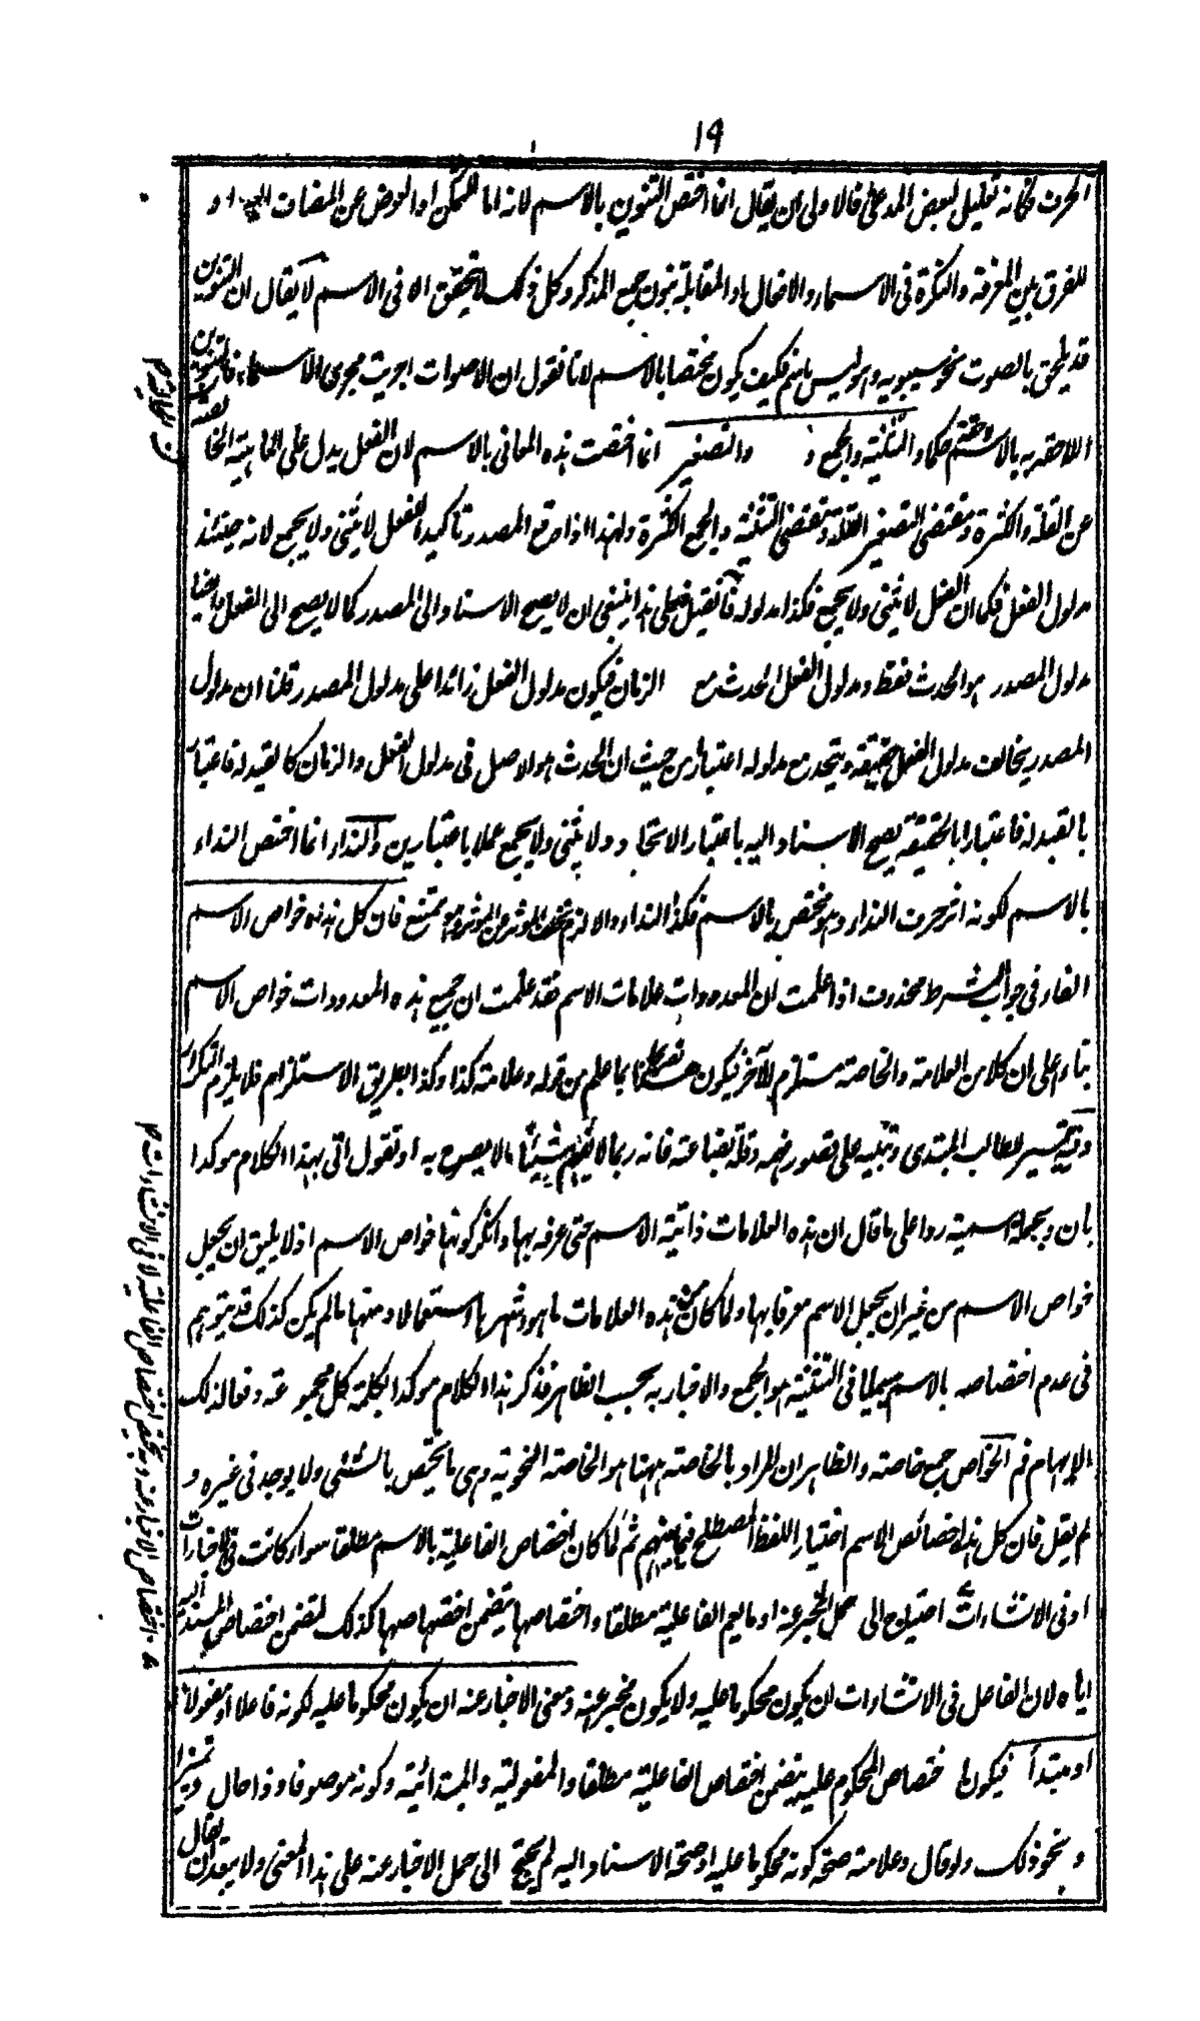 ١٩
الحرف فكانه تعليل لبعض المدعى فالاولى ان يقال انما اختص التنوين بالاسم لانه اما للتمكن او العوض عن المضاف اليه او
للفرق بين المعرفة والنكرة فى الاسماء والافعال او المقابلة بنون جمع المذكر وكل ذلك لا يتحقق الا فى الاسم لا يقال ان التنوين
قد يلحق بالصوت نحو سيبويه وهو ليس باسم فكيف يكون مختصا بالاسم لانا نقول ان الاصوات اجريت مجرى الاسماء فالتنوين
اللاحقة به بالاسم حكما والتثنية والجمع و والتصغير انما اختصت هذه المعانى بالاسم لان الفعل يدل على الماهية
عن القلة والكثرة ويقتضى التصغير القلة ويقتضى التثنية والجمع الكثرة ولهذا اذا وقع المصدر تاكيدا للفعل لا يثنى ولا يجمع لانه حينئذ
مدلول الفعل فكما ان الفعل لا يثنى ولا يجمع فكذا مدلوله فان قيل فعلى هذا ينبغى ان لا يصح الاسناد الى المصدر كما لا يصح الى الفعل وايضا
مدلول المصدر هو الحدث فقط ومدلول الفعل الحدث مع الزمان فيكون مدلول الفعل زائدا على مدلول المصدر قلنا ان مدلول
المصدر يخالف مدلول الفعل حقيقة ويتحد مع مدلوله اعتبارا من حيث ان الحدث هو الاصل فى مدلول الفعل والزمان كالقيد له فاعتبار
بالقيد له فاعتبارا بالحقيقة يصح الاسناد اليه باعتبار الاتحاد ولا يثنى ولا يجمع عملا باعتبارين والنداء انما اختص النداء
بالاسم لكونه اثر حرف النداء وهو مختص بالاسم فكذا النداء والا لزم تخلف المؤثر عن المؤثر وهو ممتنع فان كل هذه خواص الاسم
الفاء فى جواب الشرط محذوف اذا علمت ان المعدودات علامات الاسم فقد علمت ان جميع هذه المعدودات خواص الاسم
بناء على ان كلا من العلامة والخاصة مستلزم للآخر فيكون بما علم من قوله وعلامته كذا وكذا بطريق الاستلزام فلا يلزم التكرار
وفيه تيسير للطالب المبتدى وتنبيه على قصور فهمه وقلة بضاعته فانه ربما لا يفهم شيئا ما لا يصرح به او نقول اتى بهذا الكلام موكدا
بان وبجملة اسمية ردا على ما قال ان هذه العلامات ذاتية الاسم حتى عرفه بها وانكر كونها خواص الاسم اذ لا يليق ان يجعل
خواص الاسم من غير ان يجعل الاسم معرفا بها ولما كان من هذه العلامات ما هو اشهرها استعمالا ومنها ما لم يكن كذلك قد يتوهم
فى عدم اختصاصه بالاسم سيما فى التثنية والجمع والاخبار به بحسب الظاهر فذكر هذا الكلام موكدا بكلمة كل مجموعة دفعا لذلك
الايهام ثم الخواص جمع خاصة والظاهر ان المراد بالخاصة ههنا هو الخاصة النحوية وهى ما يختص بالشئى ولا يوجد فى غيره و
لم يقل فان كل هذا خصائص الاسم اختيار اللفظ المصطلح فيما بينهم ثم لما كان اختصاص الفاعلية بالاسم مطلقا سواء كانت فى الاخبارات
او فى الانشاءات احتياج الى حمل المخبر عنه او ما يعم الفاعلية مطلقا واختصاصها يتضمن اختصاصها كذلك لتضمن اختصاص المسند اليه
اياه لان الفاعل فى الانشاءات لان يكون محكوما عليه ولا يكون مخبرا عنه ومعنى الاخبار عنه ان يكون محكوما عليه لكونه فاعلا او مفعولا
او مبتدأ فيكون اختصاص المحكوم عليه يتضمن اختصاص الفاعلية مطلقا والمفعولية والمبتدائية وكونه موصوفا وذا حال وتميزا
ونحو ذلك ولو قال وعلامته صحة كونه محكوما عليه او صحة الاسناد اليه لم يحتج الى حمل الاخبار عنه على هذا المعنى ولا يبعد ان يقال